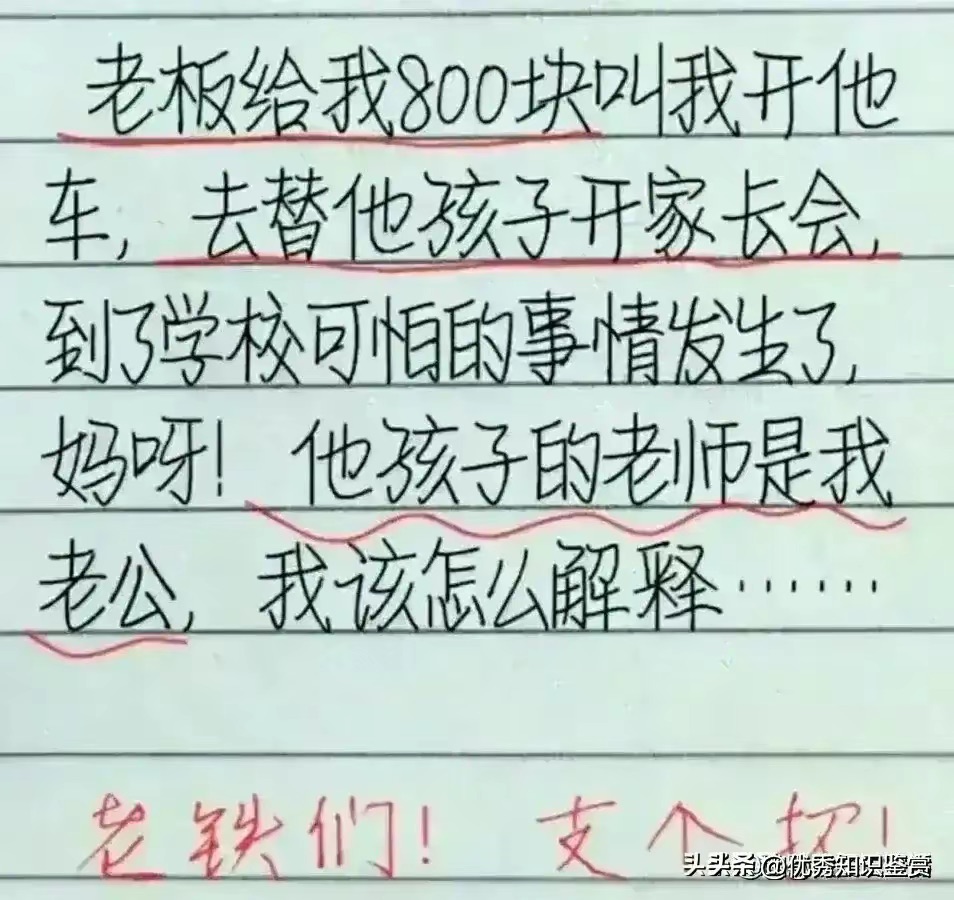 老板给我800块叫我开他
车,去替他孩子开家长会,
到了学校可怕的事情发生了,
妈呀! 他孩子的老师是我
老公,我该怎么解释……
老铁们! 支个招!
头条@优秀知识鉴赏